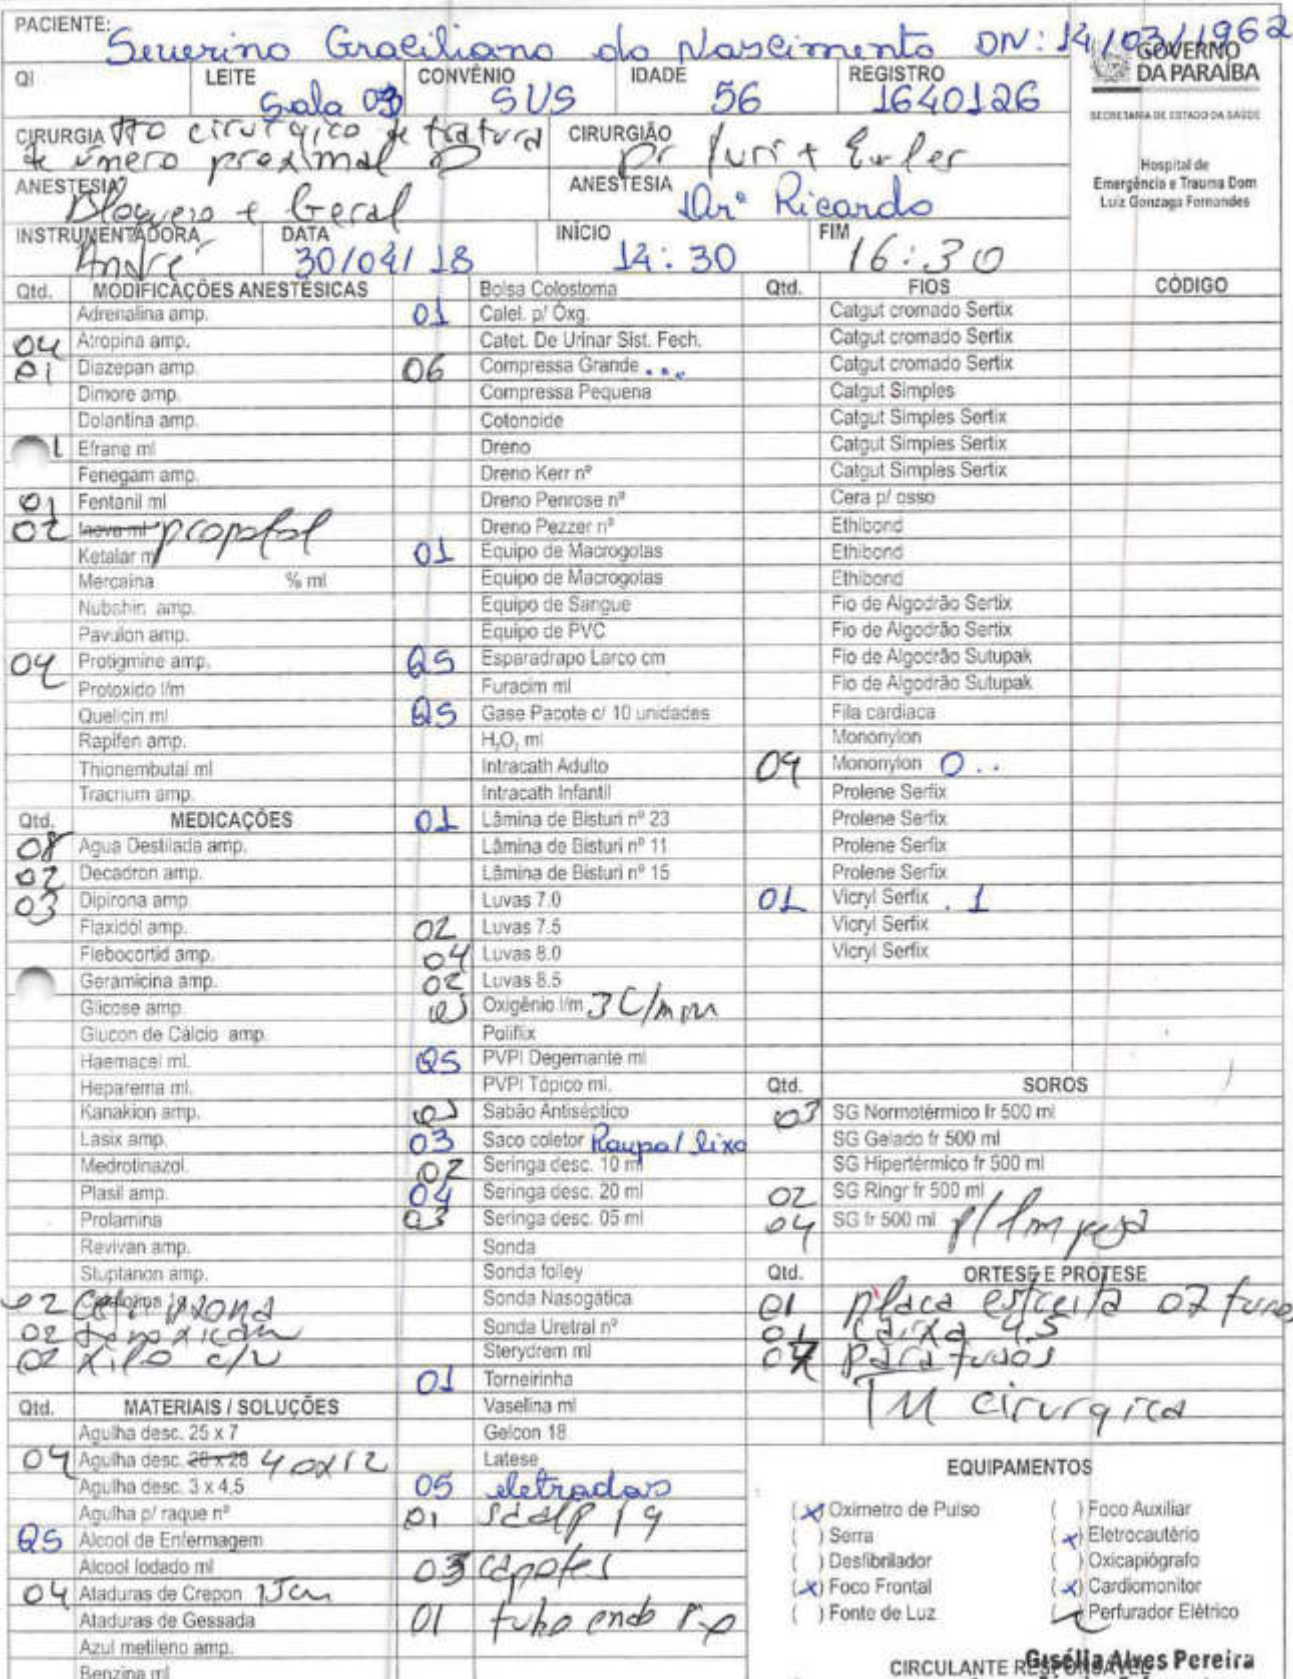 PACIENTE: Severino Graciliano do Nascimento DN: 14/03/1962
GOVERNO
DA PARAÍBA
SECRETARIA DE ESTADO DA SAÚDE
Hospital de
Emergência e Trauma Dom
Luiz Gonzaga Fernandes
QI LEITE Sala 03 CONVÊNIO SUS IDADE 56 REGISTRO 1640126
CIRURGIA TTO cirúrgico de fratura
de úmero proximal D
CIRURGIÃO Dr Iuri + Euler
ANESTESIA Bloqueio + Geral ANESTESIA Drº Ricardo
INSTRUMENTADORA André DATA 30/04/18 INÍCIO 14:30 FIM 16:30
Qtd. MODIFICAÇÕES ANESTÉSICAS
Adrenalina amp.
04 Atropina amp.
01 Diazepan amp.
Dimore amp.
Dolantina amp.
Efrane ml
Fenegam amp.
01 Fentanil ml
02 Inova ml propofol
Ketalar ml
Mercaina % ml
Nubahin amp.
Pavulon amp.
04 Protigmine amp.
Protoxido l/m
Quelicin ml
Rapifen amp.
Thionembutal ml
Tracrium amp.
Qtd. MEDICAÇÕES
08 Agua Destilada amp.
02 Decadron amp.
03 Dipirona amp.
Flaxidol amp.
Flebocortid amp.
Geramicina amp.
Glicose amp.
Glucon de Cálcio amp.
Haemacel ml.
Heparema ml.
Kanakion amp.
Lasix amp.
Medrotinazol
Plasil amp.
Prolamina
Revivan amp.
Stuptanon amp.
02
02 tenoxicam
02 xilo c/v
Qtd. MATERIAIS / SOLUÇÕES
Agulha desc. 25 x 7
04 Agulha desc. 28 x 28 40x12
Agulha desc. 3 x 4,5
Agulha p/ raque nº
QS Alcool de Enfermagem
Alcool Iodado ml
04 Ataduras de Crepon 15cm
Ataduras de Gessada
Azul metileno amp.
Benzina ml
Bolsa Colostoma
01 Calel. p/ Óxg.
Catet. De Urinar Sist. Fech.
06 Compressa Grande ...
Compressa Pequena
Cotonoide
Dreno
Dreno Kerr nº
Dreno Penrose nº
Dreno Pezzer nº
01 Equipo de Macrogotas
Equipo de Macrogotas
Equipo de Sangue
Equipo de PVC
QS Esparadrapo Larco cm
Furacim ml
QS Gase Pacote c/ 10 unidades
H₂O₂ ml
Intracath Adulto
Intracath Infantil
01 Lâmina de Bisturi nº 23
Lâmina de Bisturi nº 11
Lâmina de Bisturi nº 15
Luvas 7.0
02 Luvas 7.5
04 Luvas 8.0
02 Luvas 8.5
01 Oxigênio l/m 3 L/min
Poliflix
QS PVPI Degemante ml
PVPI Tópico ml.
01 Sabão Antiséptico
03 Saco coletor Roupa/lixo
02 Seringa desc. 10 ml
04 Seringa desc. 20 ml
03 Seringa desc. 05 ml
Sonda
Sonda folley
Sonda Nasogática
Sonda Uretral nº
Sterydrem ml
01 Torneirinha
Vaselina ml
Gelcon 18
Latese
05 eletrodos
01 scalp 19
03 capotes
01 tubo endo
Qtd. FIOS CÓDIGO
Catgut cromado Sertix
Catgut cromado Sertix
Catgut cromado Sertix
Catgut Simples
Catgut Simples Sertix
Catgut Simples Sertix
Catgut Simples Sertix
Cera p/ osso
Ethibond
Ethibond
Ethibond
Fio de Algodrão Sertix
Fio de Algodrão Sertix
Fio de Algodrão Sutupak
Fio de Algodrão Sutupak
Fila cardiaca
Mononylon
04 Mononylon 0..
Prolene Serfix
Prolene Serfix
Prolene Serfix
Prolene Serfix
01 Vicryl Serfix . 1
Vicryl Serfix
Vicryl Serfix
Qtd. SOROS
03 SG Normotérmico fr 500 ml
SG Gelado fr 500 ml
SG Hipertérmico fr 500 ml
02 SG Ringr fr 500 ml
04 SG fr 500 ml p/ limpeza
Qtd. ORTESE E PRÓTESE
01 placa estreita 07 furos
01 caixa 4.5
parafusos
TM cirurgica
EQUIPAMENTOS
(x) Oxímetro de Pulso ( ) Foco Auxiliar
( ) Serra (x) Eletrocautério
( ) Desfibrilador ( ) Oxicapiógrafo
(x) Foco Frontal (x) Cardiomonitor
( ) Fonte de Luz Perfurador Elétrico
CIRCULANTE RESPONSÁVEL
Gisélia Alves Pereira